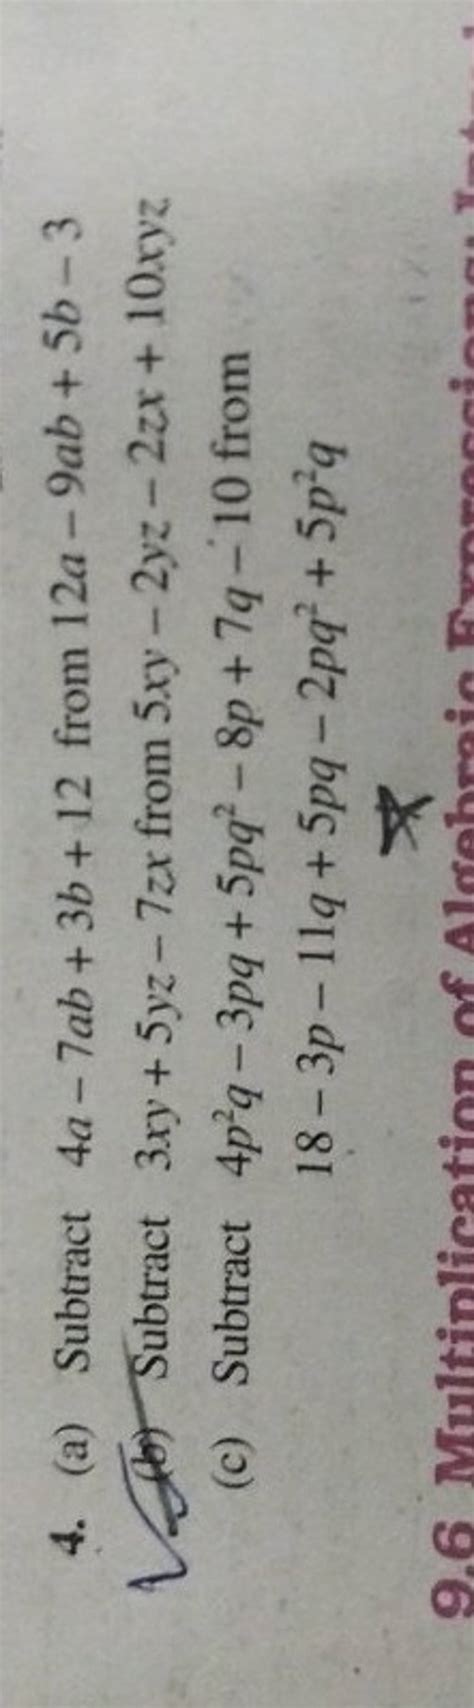 4. (a) Subtract 4a – 7ab + 3b + 12 from 12a – 9ab + 5b – 3
(b) Subtract 3xy + 5yz – 7zx from 5xy – 2yz – 2zx + 10xyz
(c) Subtract 4p²q – 3pq + 5pq² – 8p + 7q – 10 from
18 – 3p – 11q + 5pq – 2pq² + 5p²q
9.6 Multiplication of Algebraic Expressions: